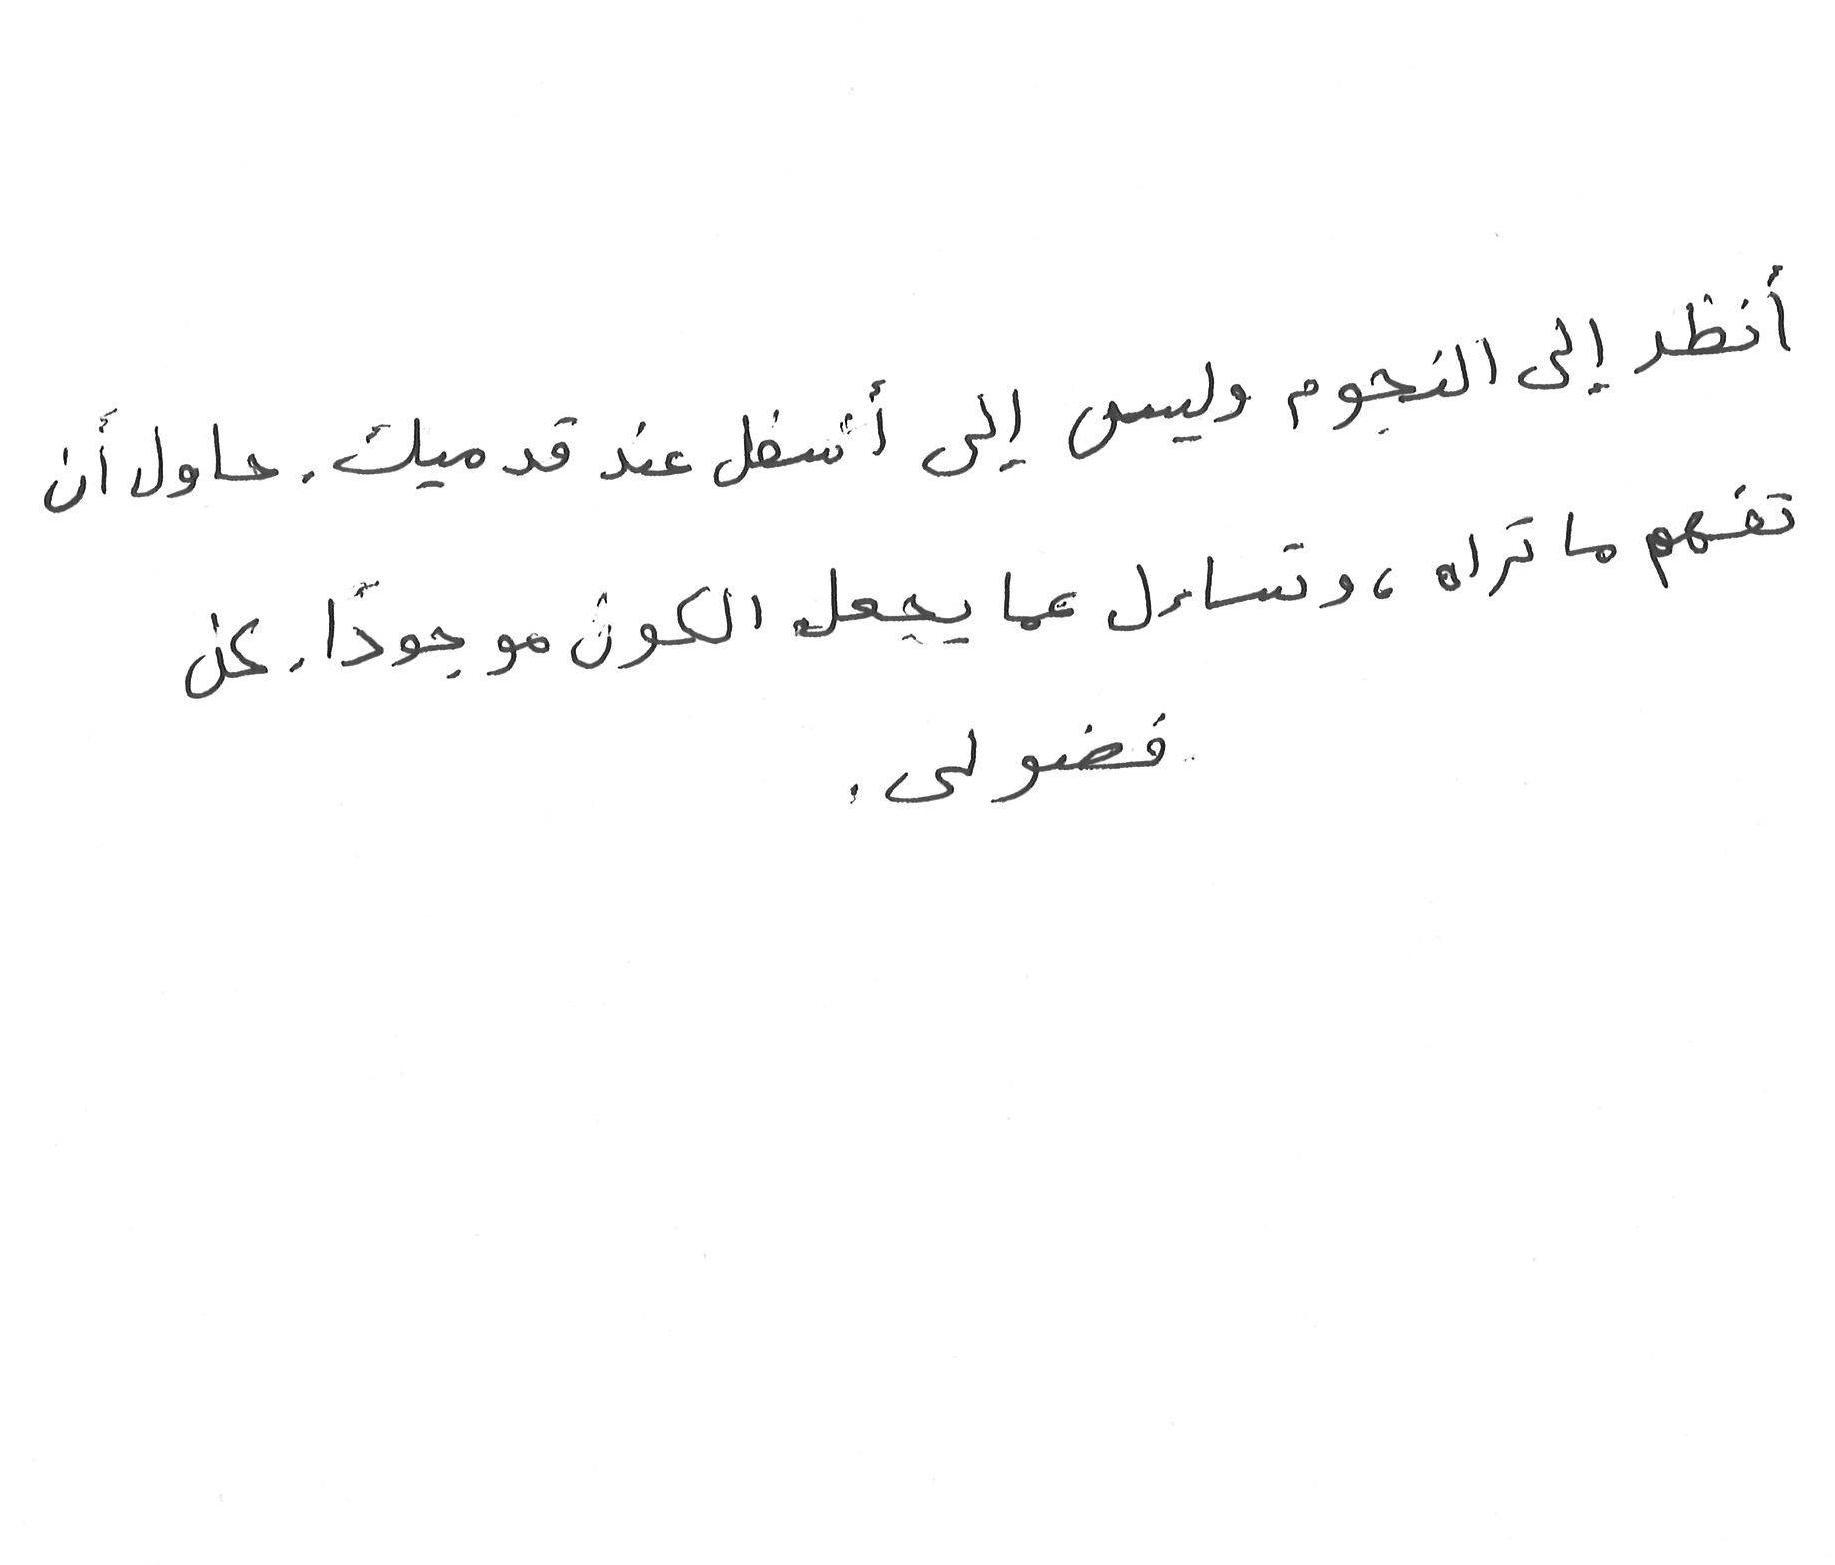 أنظر إلى النجوم وليس إلى أسفل عند قدميك. حاول أن
تفهم ما تراه، وتساءل عما يجعل الكون موجودًا. كن
فضولى.